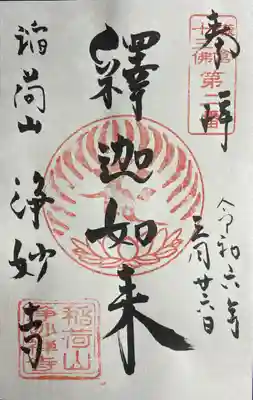 奉拝
鎌倉
十三佛
第二番
令和六年
三月廿六日
釋迦如来
稲荷山
浄妙寺
稲荷山